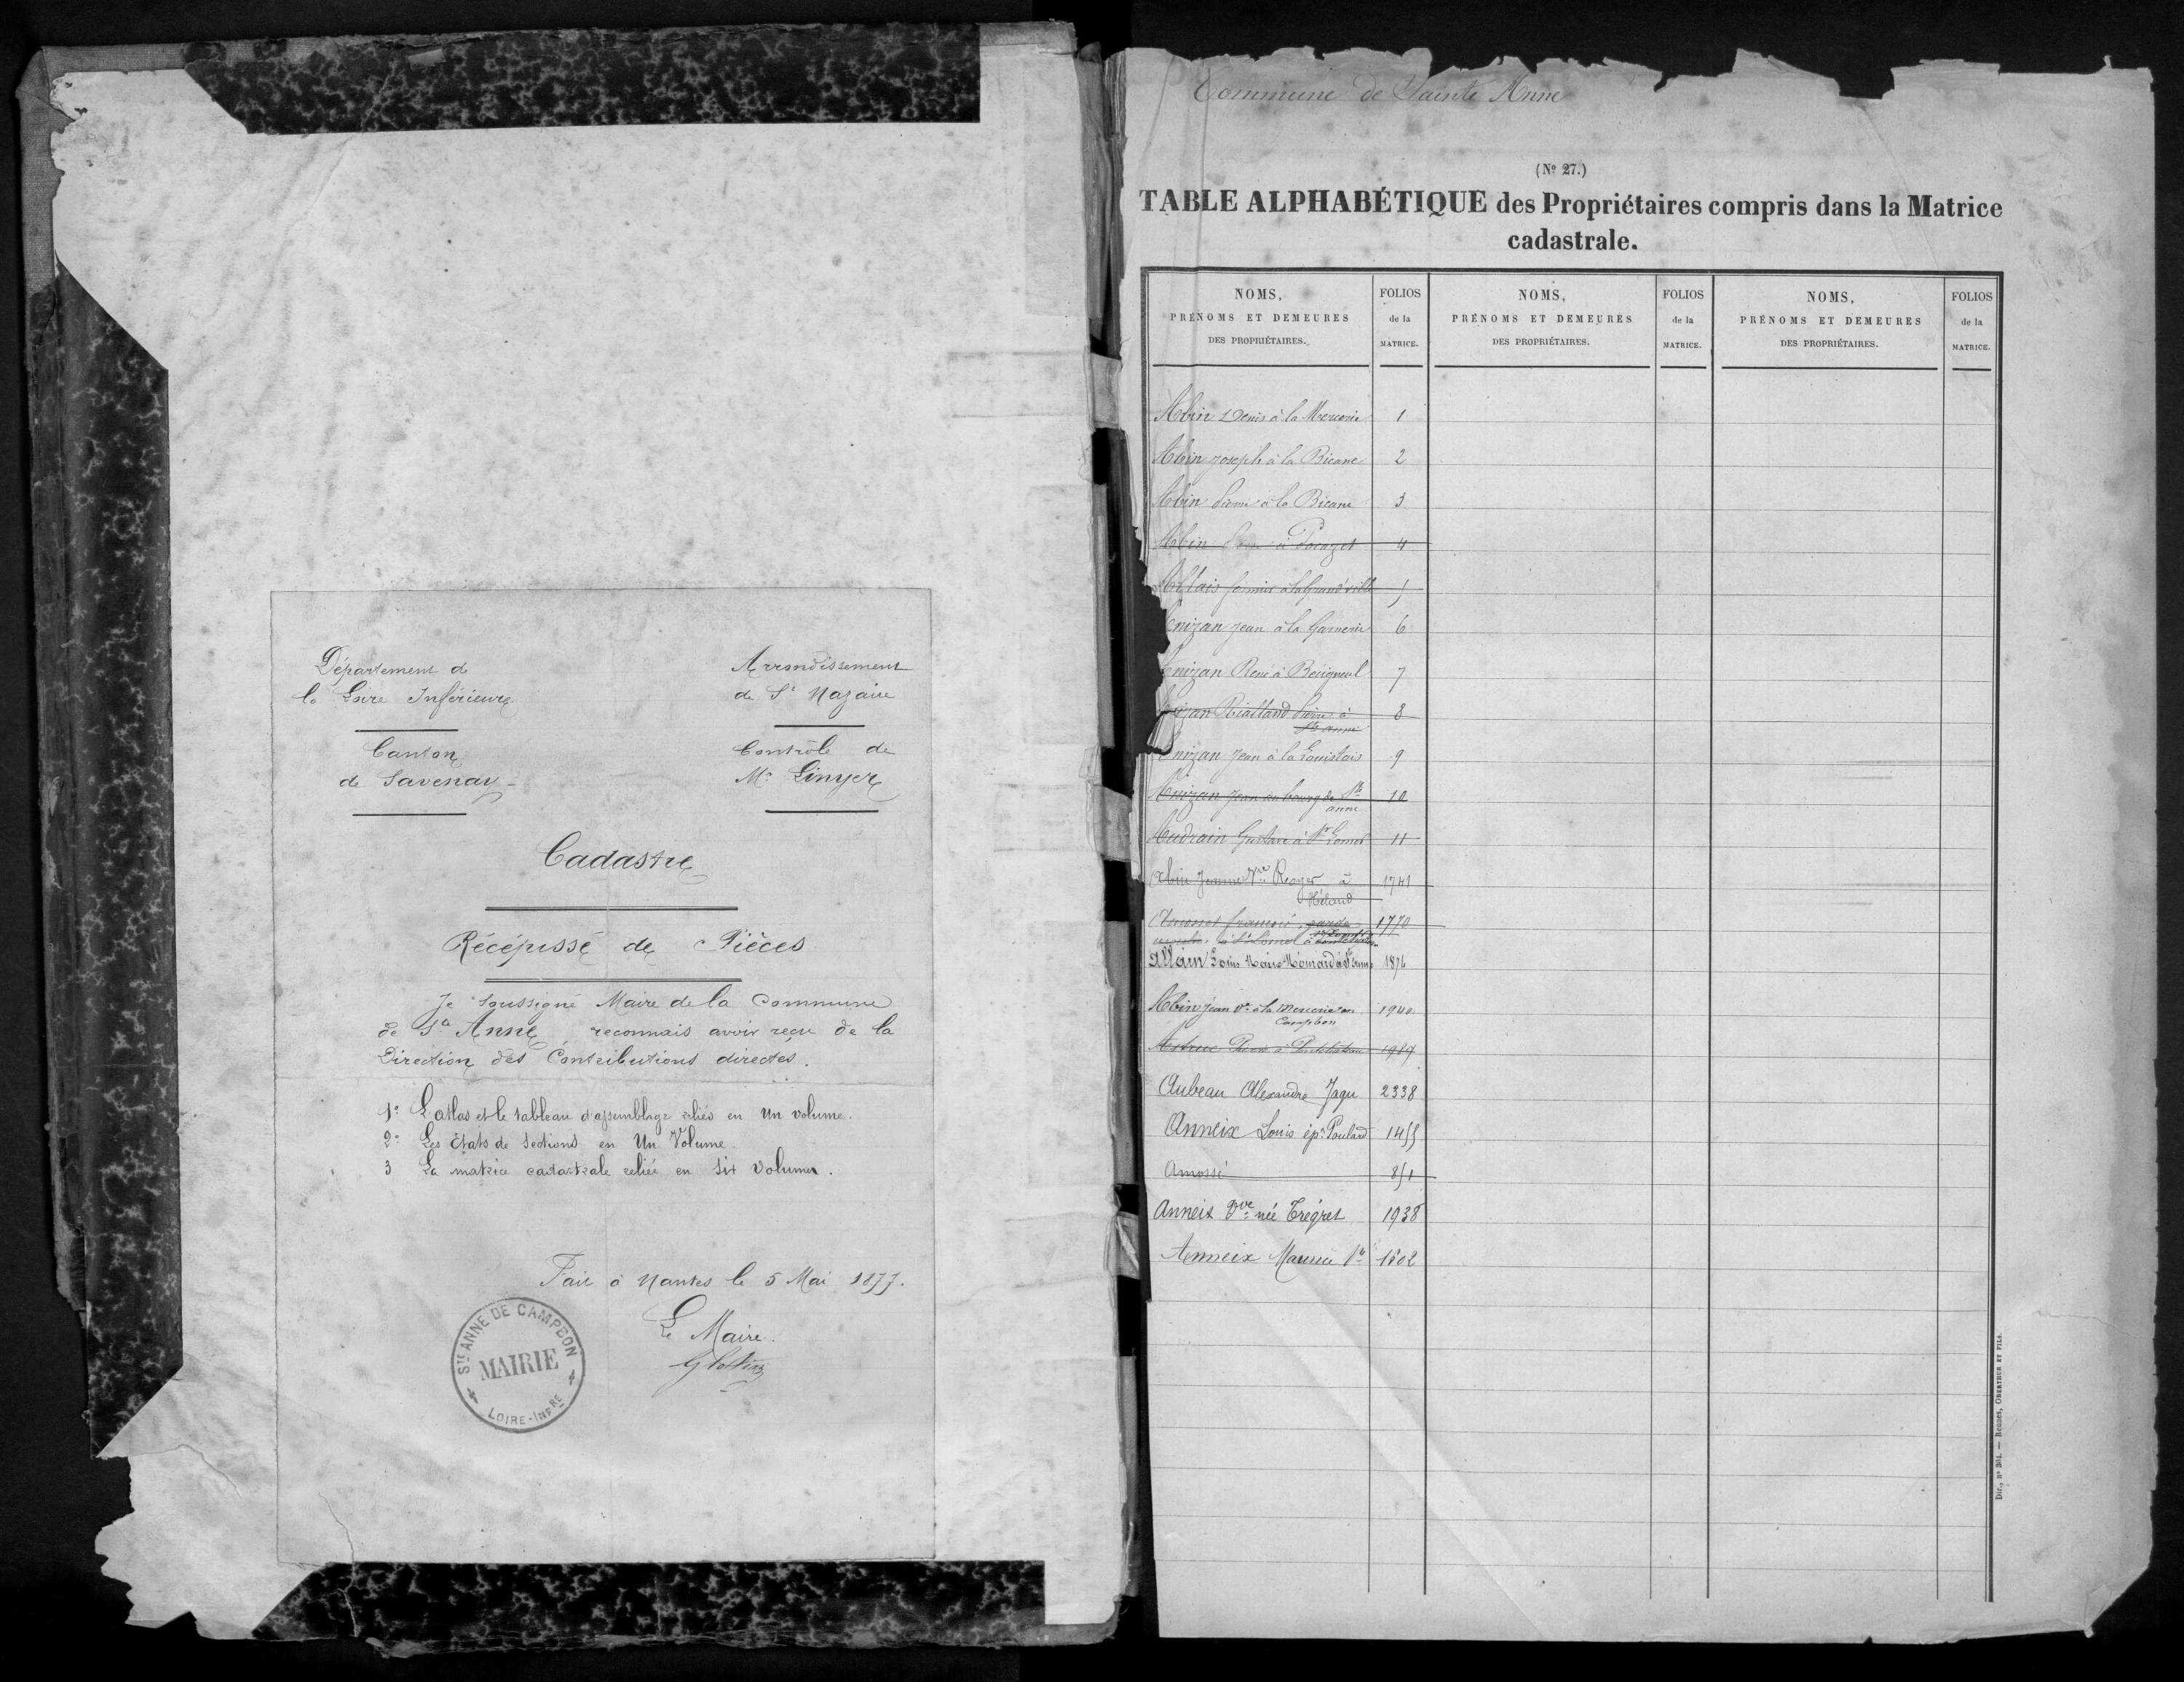 Département de
la Loire Inférieure
Arrondissement
de St Nazaire
Canton
de Savenay
Contrôle de
Mr Linyer
Cadastre
Récépissé de Pièces
Je soussigné Maire de la Commune
de Ste Anne reconnais avoir reçu de la
Direction des Contributions directes.
1° L'atlas et le tableau d'assemblage reliés en un volume.
2° Les Etats de Sections en Un Volume
3 La matrice cadastrale reliée en six volumes.
Fait à Nantes le 5 Mai 1877.
Le Maire.
STE ANNE DE CAMPBON
MAIRIE
LOIRE-INFRE
Commune de Sainte Anne
(No 27.)
TABLE ALPHABÉTIQUE des Propriétaires compris dans la Matrice
cadastrale.
NOMS, PRÉNOMS ET DEMEURES DES PROPRIÉTAIRES. FOLIOS de la MATRICE. NOMS, PRÉNOMS ET DEMEURES DES PROPRIÉTAIRES. FOLIOS de la MATRICE. NOMS, PRÉNOMS ET DEMEURES DES PROPRIÉTAIRES. FOLIOS de la MATRICE.
Abin Denis à la Mercerie 1
Abin Joseph à la Bicane 2
Abin Pierre à la Bicane 3
Abin à 4
Allais à la Grand'ville 5
nizan Jean à la Garnerie 6
nizan René à Bécigneul 7
izan Rialland Pierre à 8
Ste anne
nizan Jean à la Louistais 9
Anizan Jean au bourg de Ste 10
anne
Audrain Gustave à St Lomer 11
Abin Jeanne Vve Royer à 1741
garde 1770
à St Lomer à
Allain Louis Marie à Ste Anne 1876
Abin Jean Ve à la Mercerie en 1940
Campbon
Astruc à Pontchateau 1987
Aubeau Alexandre Jagu 2338
Anneix Louis ép. Poulard 1455
Amossé 851
Anneix Vve née Trégret 1938
Anneix Maurice 1602
Dir., no 304. — Rennes, OBERTHUR ET FILS.